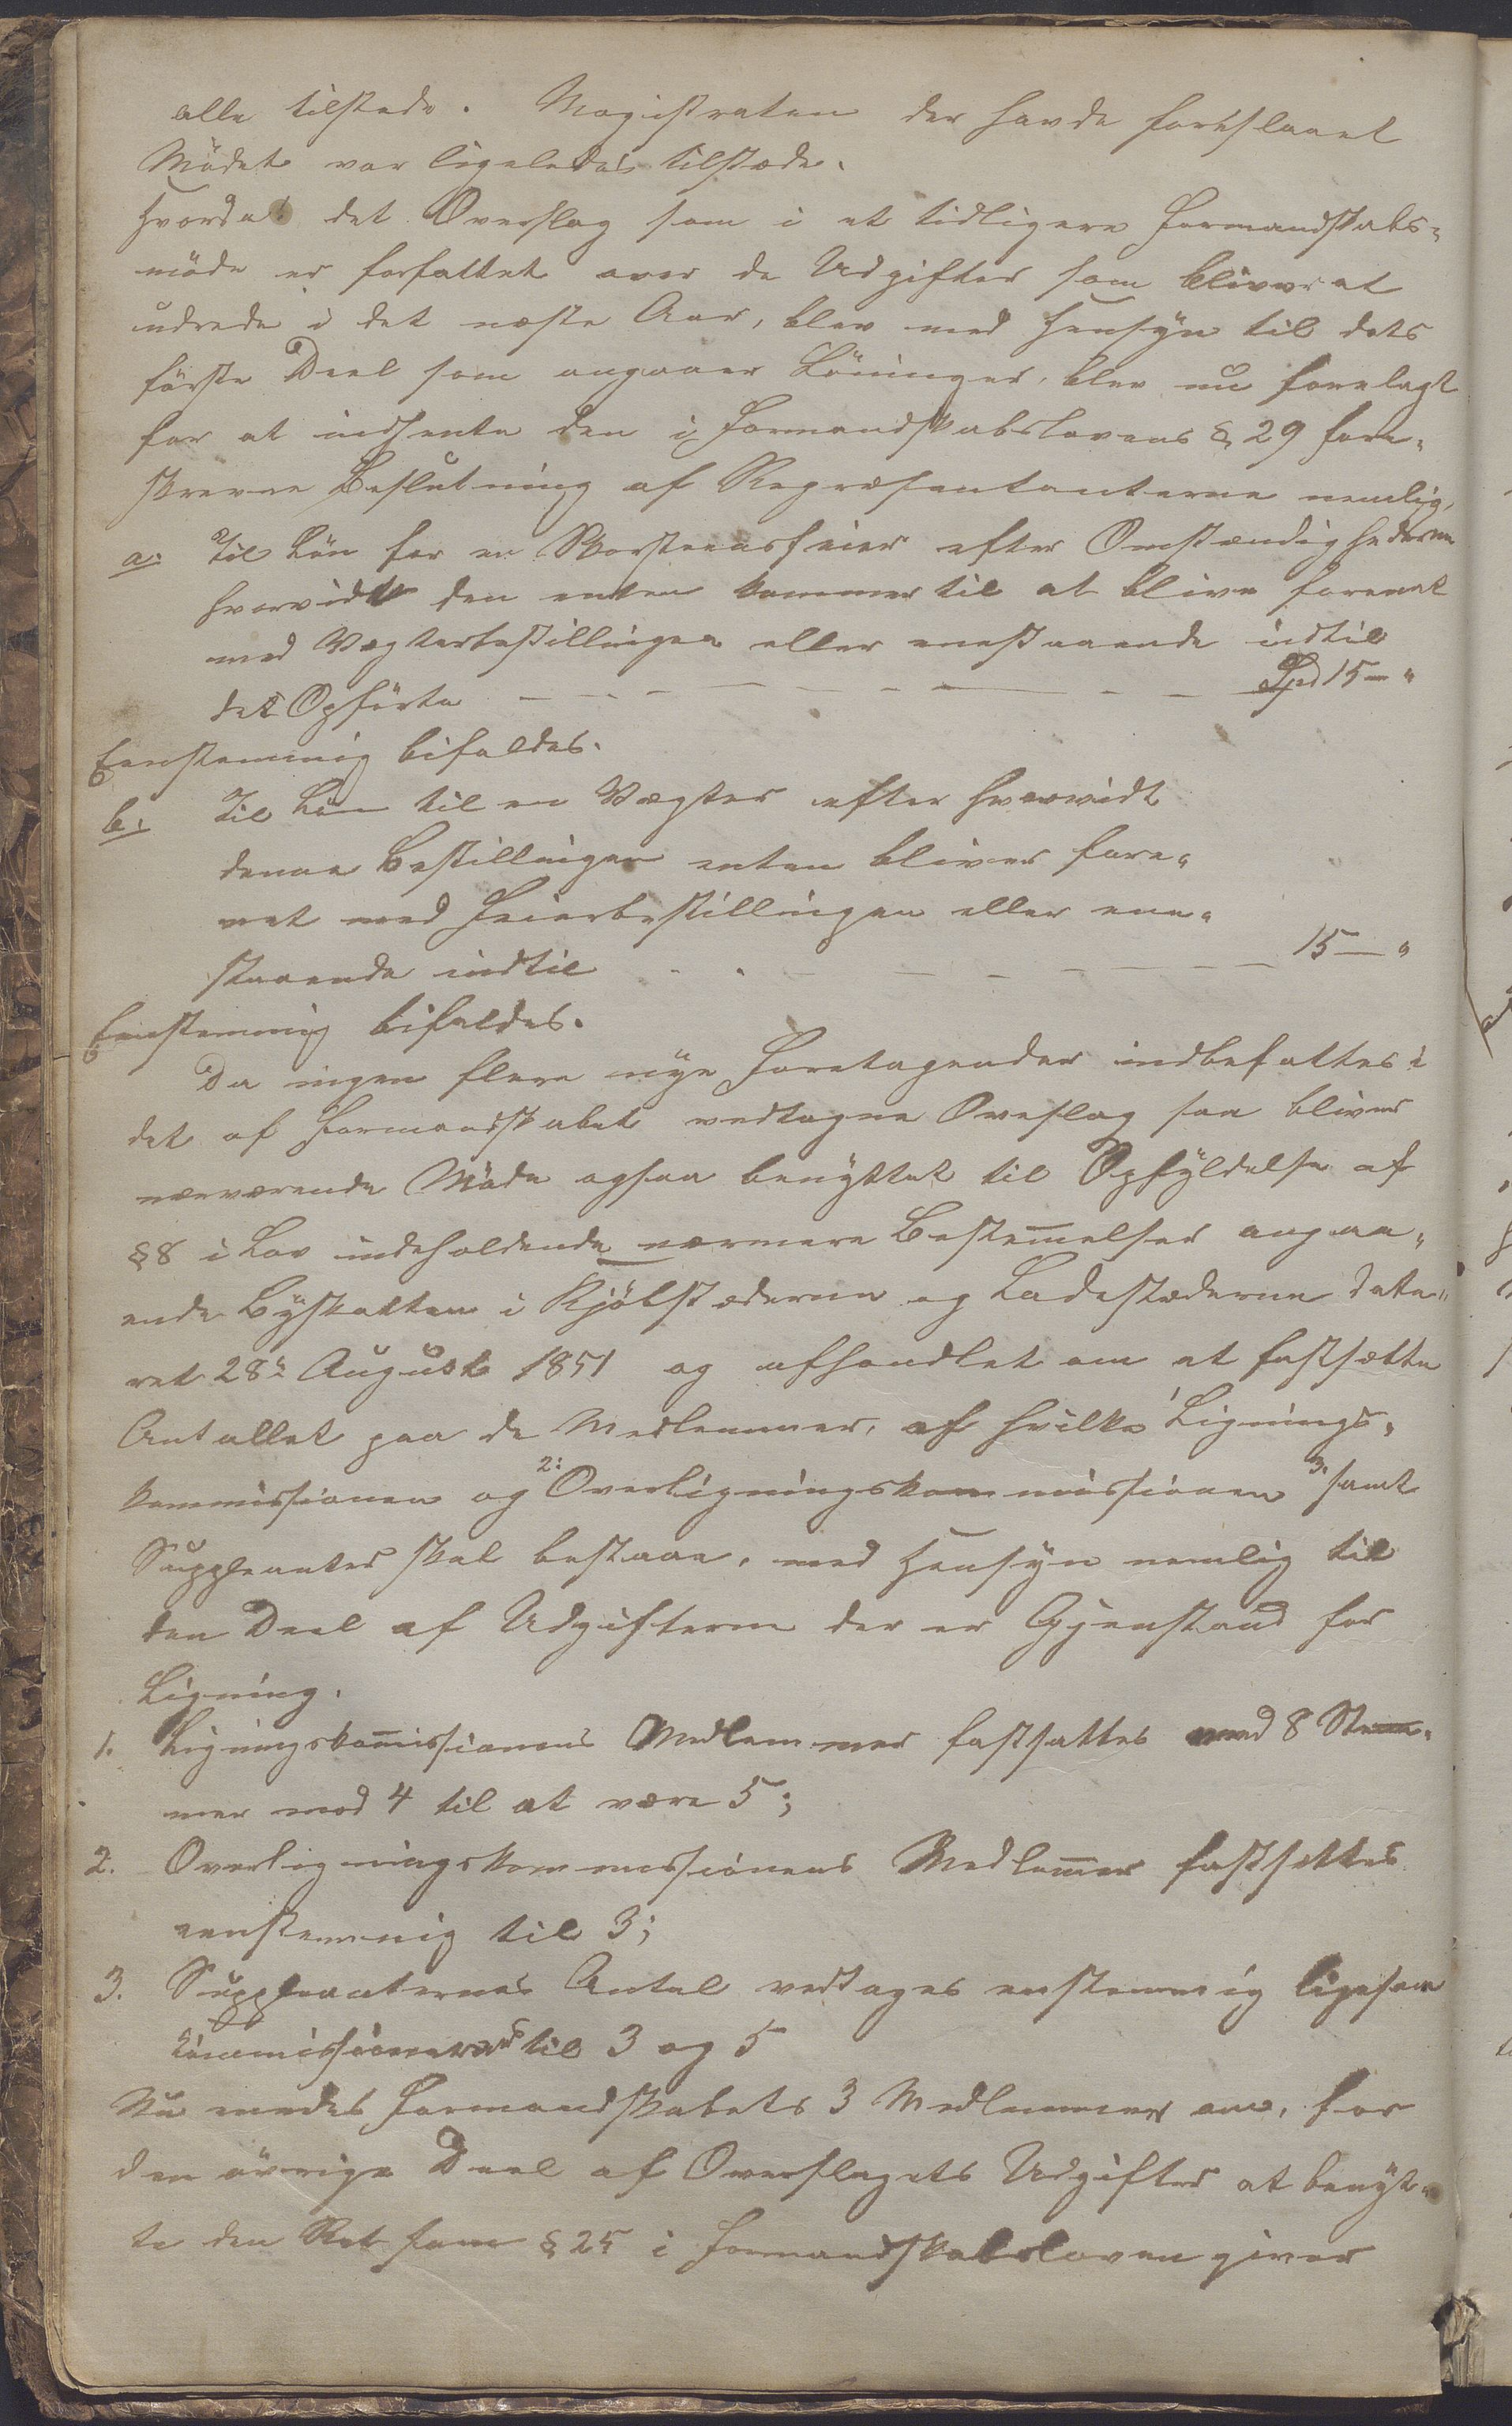 alle tilstede. Magistraten der havde foreslaaet
Mödet var ligeledes tilstæde.
Hvorda det Overslag som i et tidligere Formandskabs-
möde er forfattet over de Udgifter som bliver at
udrede i det næste Aar, blev med Hensyn til dets
første Deel som angaaer Lönninger, blev nu forelagt
for at indhente den i Formandskabslovens § 29 fore-
skrevne Beslutning af Repræsentanterne nemlig,
a. Til Lön for en Skorsteensfeier efter Omstændighederne
hvorvidt den enten kommer til at blive forenet
med Vægterbestillingen eller enestaaende indtil
det Opförte - - - - - - - - Spd 15 - "
Eenstemmig bifaldes.
b. Til Lön til en Vægter efter hvorvidt
denne Bestillingen enten bliver fore-
net med Feierbestillingen eller ene-
staaende indtil - - - - - - - 15 - "
Eenstemmig bifaldes.
Da ingen flere nye Foretagender indbefattes i
det af Formandskabet vedtagne Oveslag saa bliver
nærværende Möde ogsaa benyttet til Opfyldelse af
§ 8 i Lov indeholdende nærmere Bestem̅elser angaa-
ende Byskatten i Kjöbstæderne og Ladestæderne date-
ret 28de August 1851 og afhandlet om at fastsætte
Antallet paa de Medlemmer, af hvilke 1 Lignings-
kommissionen og 2: Overligningskommissionen 3. samt
Suppleanter skal bestaae, med Hensyn nemlig til
den Deel af Udgifterne der er Gjenstand for
Ligning.
1. Ligningskom̅issionens Medlemmer fastsattes med 8 Stem-
mer mod 4 til at være 5;
2. Overligningskommissionens Medlem̅er fastsettes
eenstemmig til 3;
3. Suppleanternes Antal vedtages enstemmig ligesom
Kommissionernes til 3 og 5
Nu enedes Formandskabets 3 Medlemmer om, for
den övrige Deel af Overslagets Udgifter at benyt-
te den Ret som § 25 i Formandskabsloven giver